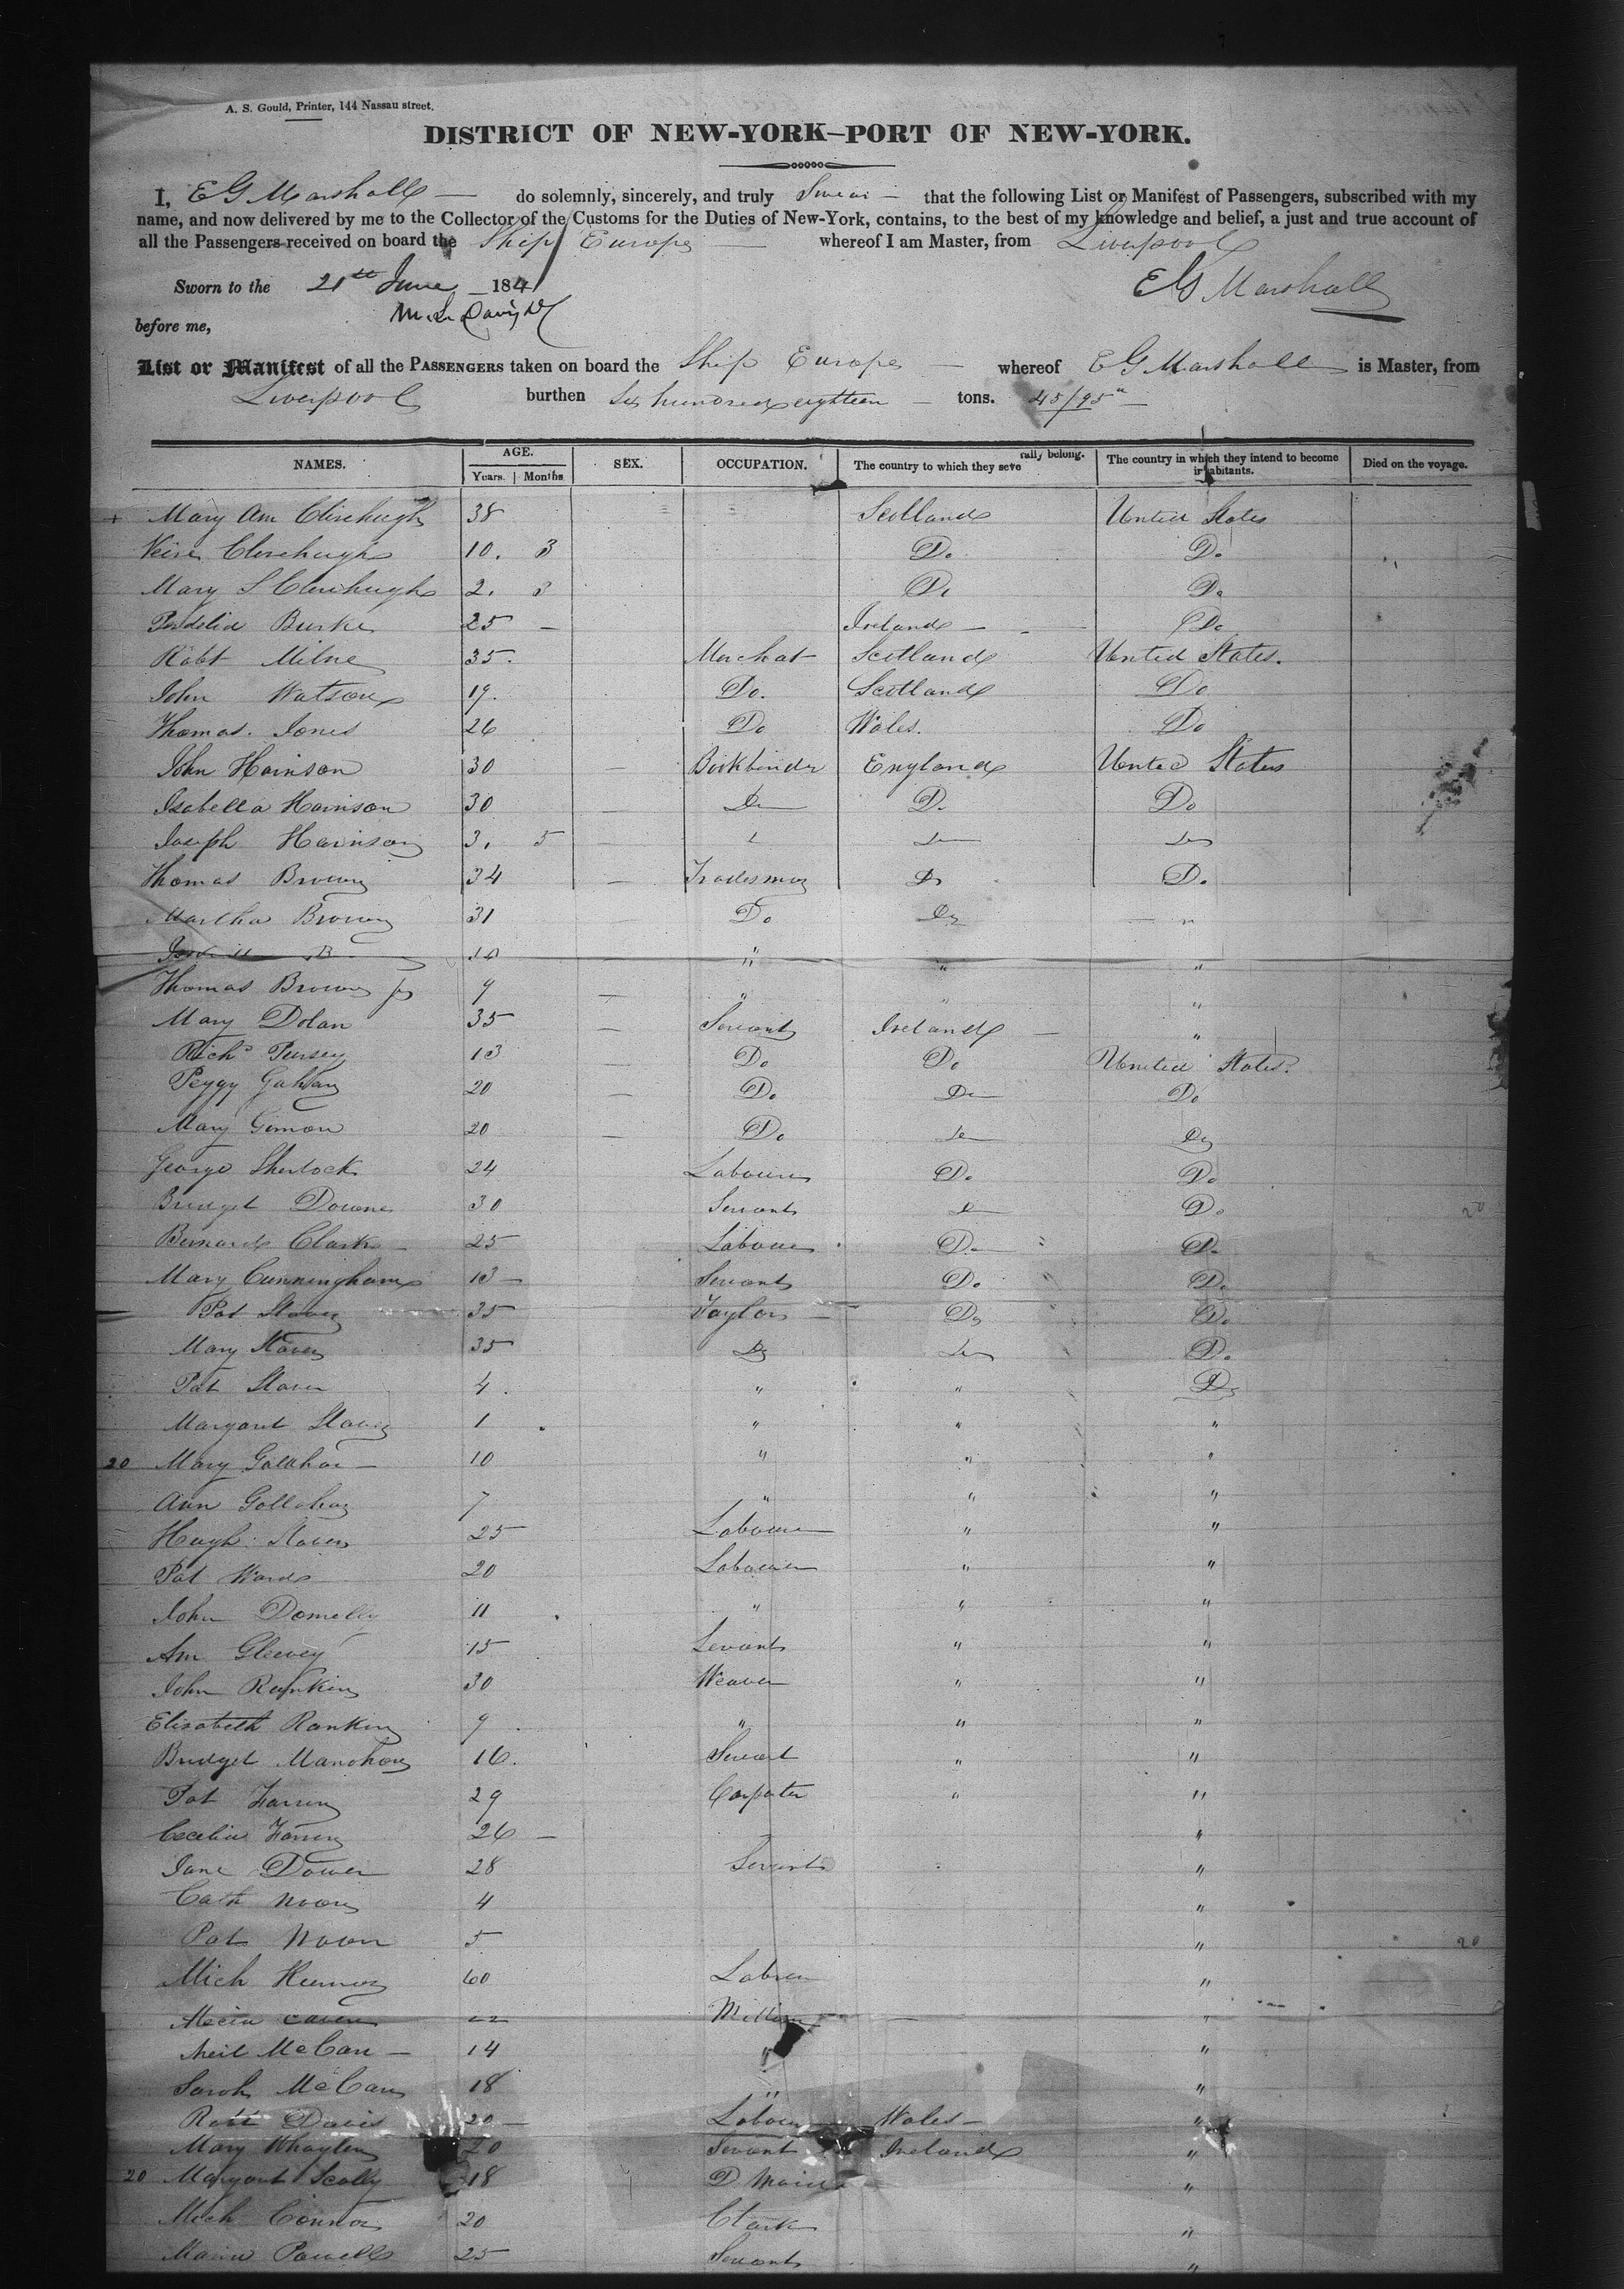 A. S. Gould, Printer, 144 Nassau street.
DISTRICT OF NEW-YORK—PORT OF NEW-YORK.
I, E G Marshall — do solemnly, sincerely, and truly Swear — that the following List or Manifest of Passengers, subscribed with my
name, and now delivered by me to the Collector of the Customs for the Duties of New-York, contains, to the best of my knowledge and belief, a just and true account of
all the Passengers received on board the Ship Europe — whereof I am Master, from Liverpool
Sworn to the 21st June 1841 E G Marshall
before me,
List or Manifest of all the PASSENGERS taken on board the Ship Europe — whereof E G Marshall is Master, from
Liverpool burthen Six hundred eighteen — tons. 45/95
NAMES. AGE. SEX. OCCUPATION. The country to which they severally belong. The country in which they intend to become inhabitants. Died on the voyage.
Years. Months
+ Mary Ann Clerehugh 38 Scotland United States
Clerehugh 10. 3 Do Do
Mary S Clerehugh 2. 3 Do Do
Burke 25 — Ireland — Do
Robt Milne 35. Merchat Scotland United States.
John Watson 19. Do. Scotland Do
Thomas Jones 26 Do Wales. Do
John Harrison 30 — Bookbinder England United States
Isabella Harrison 30 Do Do Do
Joseph Harrison 3. 5 — Do Do
Thomas Brown 34 — Tradesman Do Do
Martha Brown 31 — Do Do "
10 " " "
Thomas Brown jr 9 — " " "
Mary Dolan 35 — Servant Ireland — "
Richd Pursey 13 — Do Do United States
Peggy 20 — Do Do Do
Mary Gimon 20 — Do Do Do
George Sherlock 24 Labourer Do Do
Bridget Downe 30 Servant Do Do 20
Bernard Clark 25 Labourer Do Do
Mary Cunningham 13 — Servant Do Do
Pat Slaven 35 Taylor — Do Do
Mary Slaven 35 Do Do Do
Pat Slaven 4. " " Do
Margaret Slaven 1 " " "
20 Mary — 10 " " "
Ann Gollahar 7 " " "
Hugh Slaven 25 Labourer " "
Pat Ward 20 Labourer " "
John Donnelly 11 " " "
Ann 15 Servant " "
John Rankin 30 Weaver " "
Elisabeth Rankin 9 " " "
Bridget Manohan 16. Servant " "
Pat Farren 29 Carpenter " "
Cecelia Farren 26 — "
Jane Dower 28 Servant "
Cath Noon 4 "
Pat Noon 5 " 20
Mich 60 Labourer "
22 "
Neil McCan — 14 " "
Sarah McCan 18 " "
Robt Davis 20 — Labour Wales — "
Mary Whaylen 20 Servant Ireland "
20 Margaret Scally 18 D Maid "
Mich Connor 20 Clark "
Maria Powell 25 Servant "